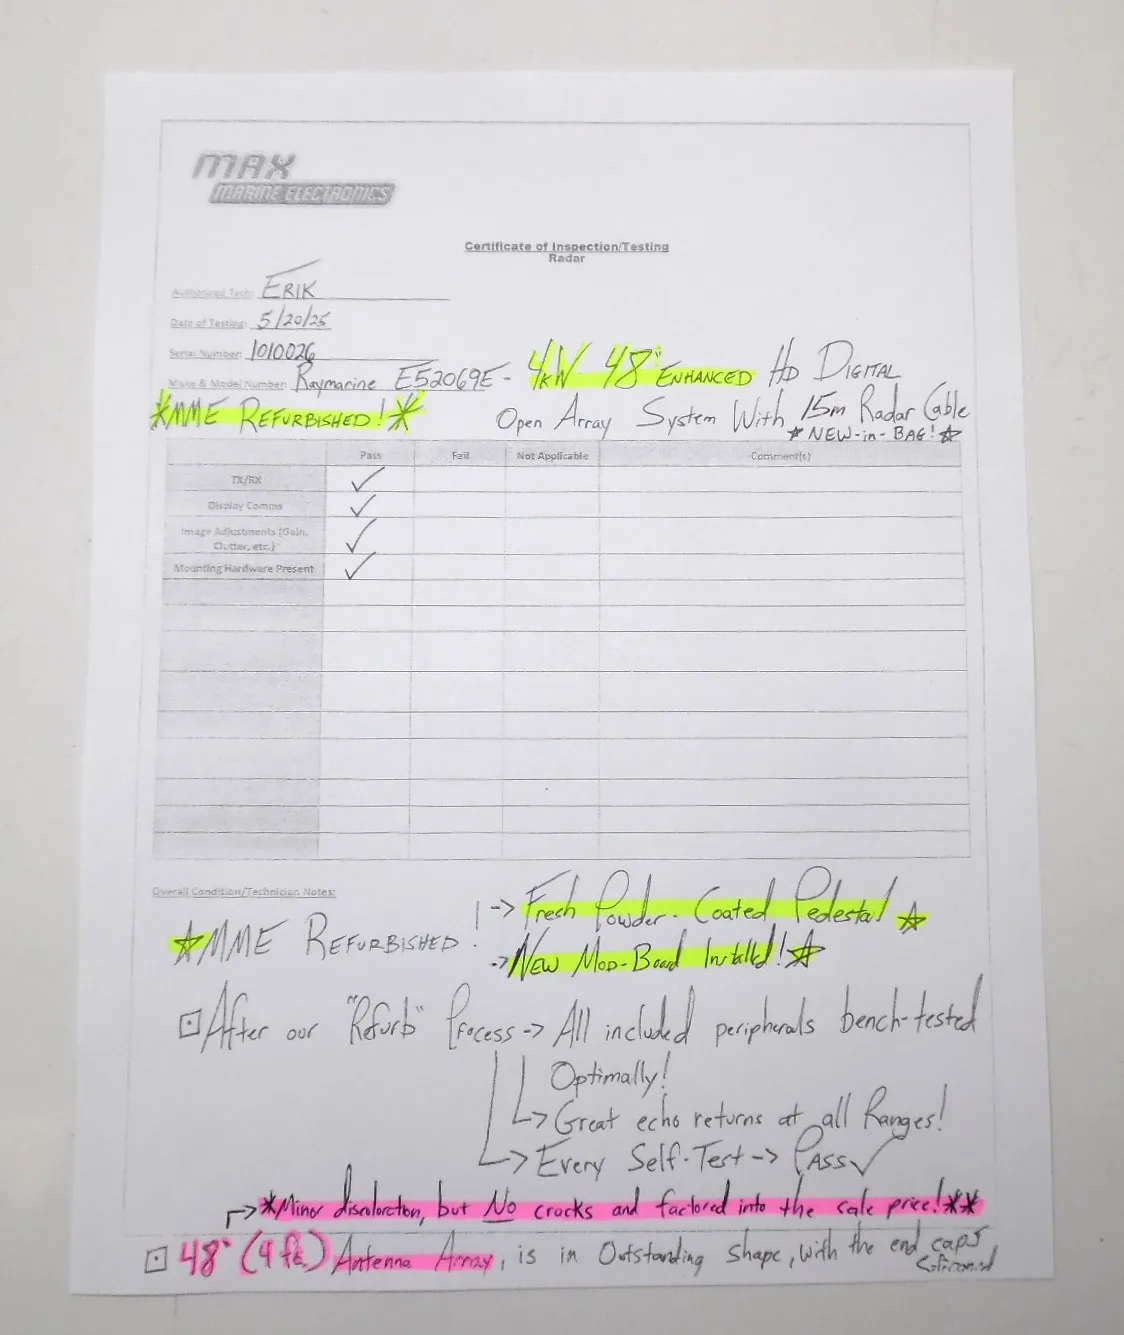 MAX
MARINE ELECTRONICS
Certificate of Inspection/Testing
Radar
Authorized Tech: ERIK
Date of Testing: 5/20/25
Serial Number: 1010026
Make & Model Number: Raymarine E52069E - 4kW 48" ENHANCED HD DIGITAL
*MME REFURBISHED!* Open Array System With 15m Radar Cable
☆NEW-in-BAG!☆
Pass Fail Not Applicable Comment(s)
TX/RX ✓
Display Comms ✓
Image Adjustments (Gain,
Clutter, etc.) ✓
Mounting Hardware Present ✓
Overall Condition/Technician Notes:
-> Fresh Powder-Coated Pedestal ☆
☆MME REFURBISHED!
-> New Mod-Board Installed!☆
After our "Refurb" Process -> All included peripherals bench-tested
Optimally!
-> Great echo returns at all Ranges!
-> Every Self-Test -> PASS ✓
-> *Minor discoloration, but No cracks and factored into the sale price!**
48" (4 ft.) Antenna Array, is in Outstanding shape, with the end caps